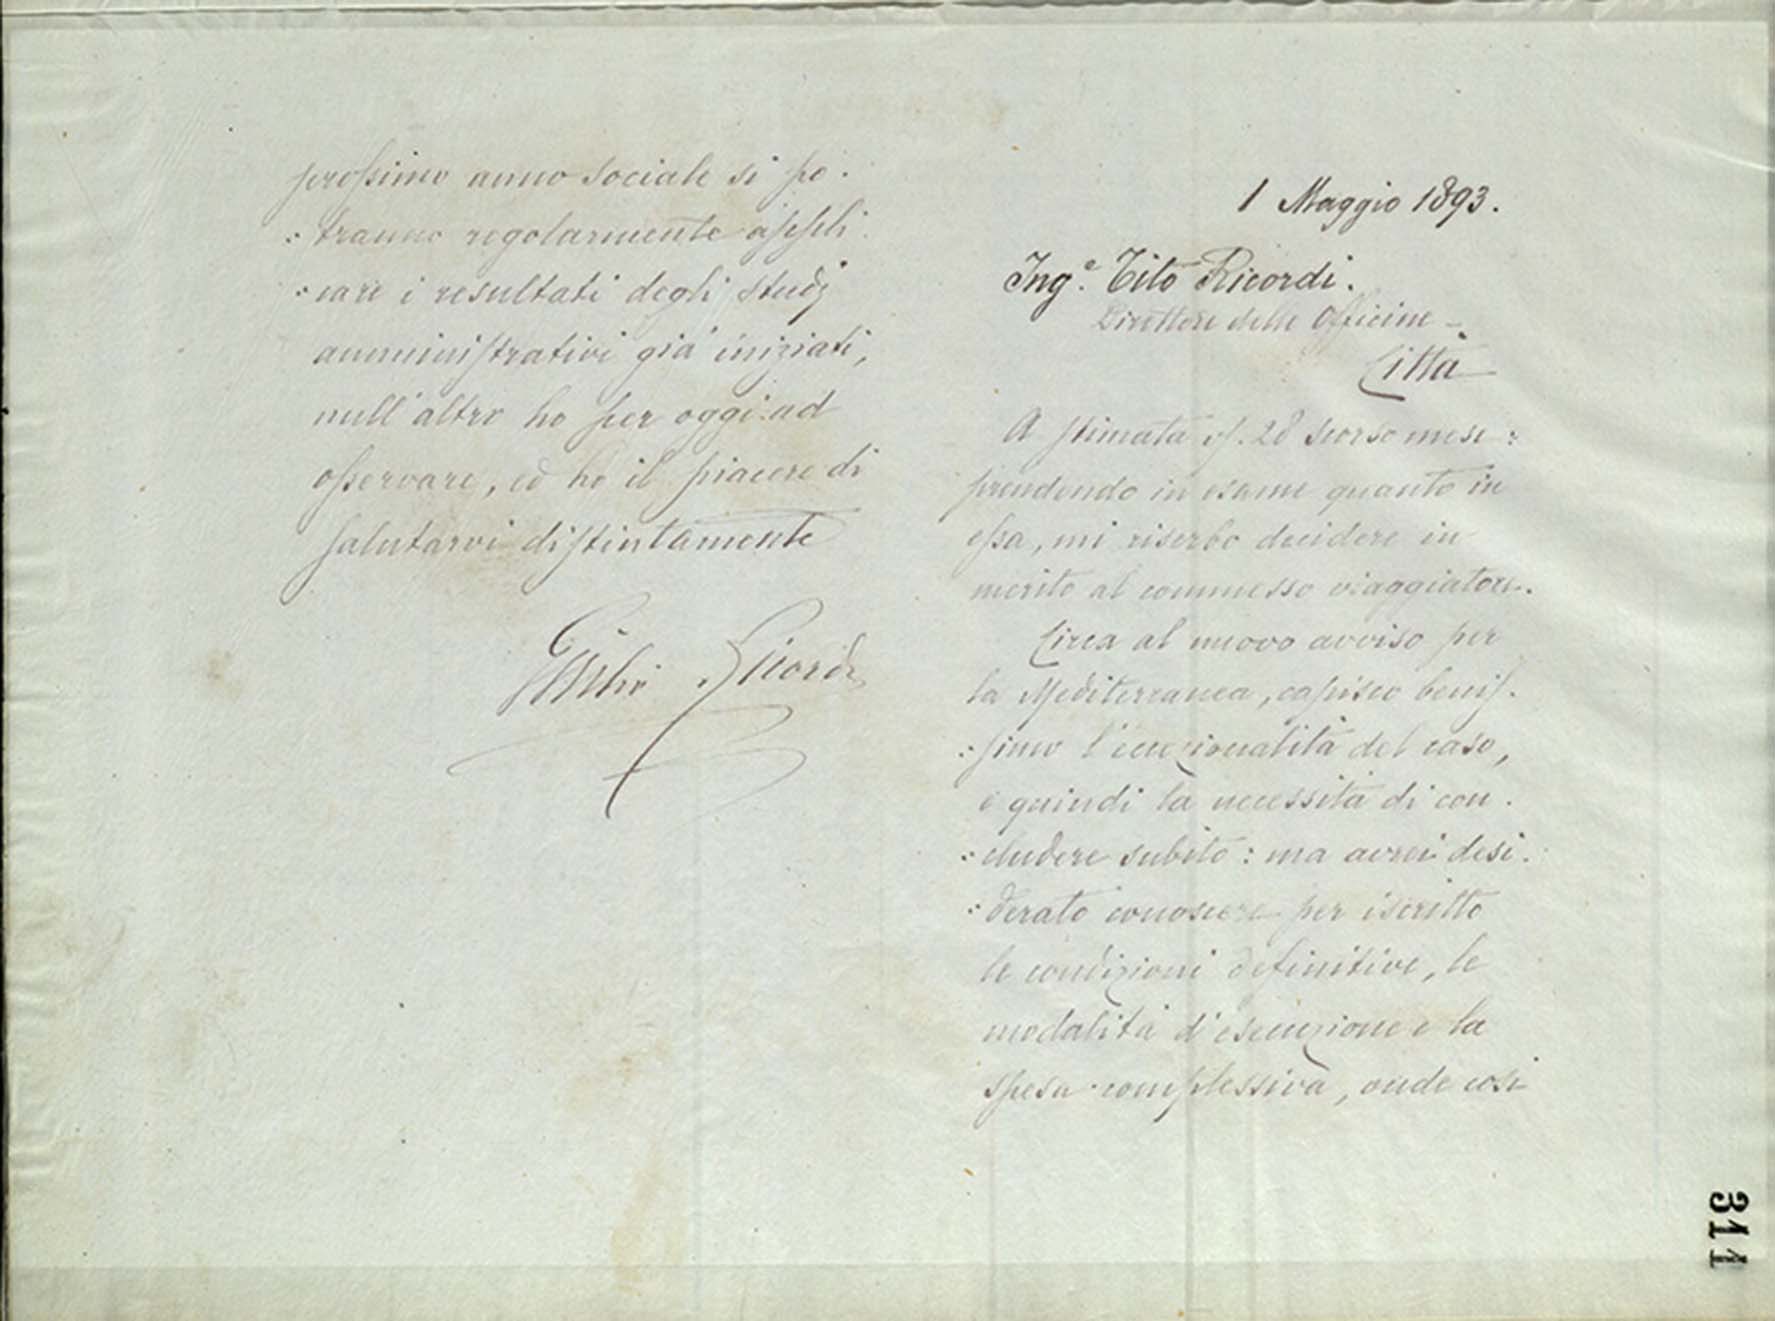 prossimo anno sociale si po-
:tranno regolarmente appli-
:care i resultati degli studj
amministrativi già iniziati,
null'altro ho per oggi ad
osservare, ed ho il piacere di
salutarvi distintamente
Giulio Ricordi
1 Maggio 1893.
Ing.e Tito Ricordi.
Direttore delle Officine -
Città
A stimata vs. 28 scorso mese:
prendendo in esame quanto in
essa, mi riserbo decidere in
merito al commesso viaggiatore.
Circa al nuovo avviso per
la Mediterranea, capisco benis-
:simo l'eccezionalità del caso,
e quindi la necessità di con-
:cludere subito: ma avrei desi-
:derato conoscere per iscritto
le condizioni definitive, le
modalità d'esecuzione e la
spesa complessiva, onde così
311